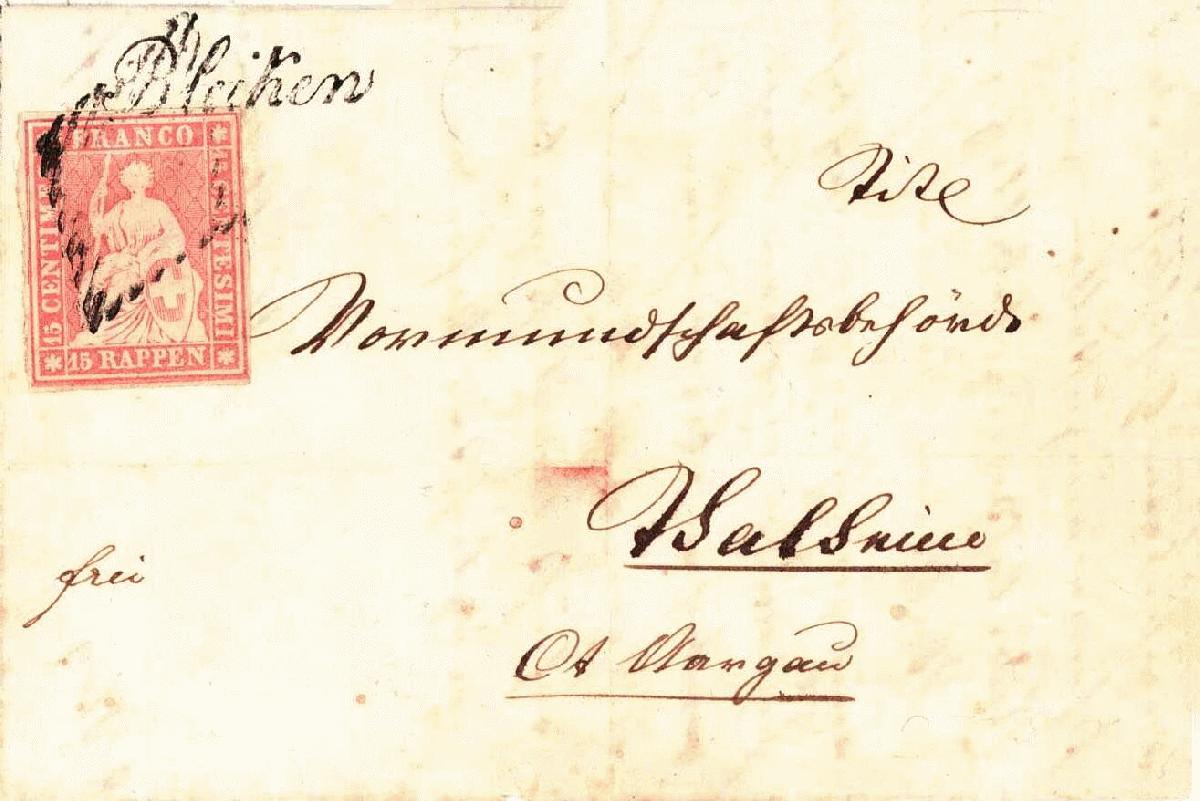 Bleiken
FRANCO
15 CENTIMES
15 CENTESIMI
15 RAPPEN
Tit.
Vormundschaftsbehörde
frei
Ct Aargau